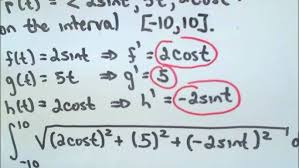 r(t) = < 2sint, 5t, 2cost
on the interval [-10,10].
f(t) = 2sint ⇒ f' = 2cost
g(t) = 5t ⇒ g' = 5
h(t) = 2cost ⇒ h' = -2sint
∫_{-10}^{10} √((2cost)² + (5)² + (-2sint)²) d